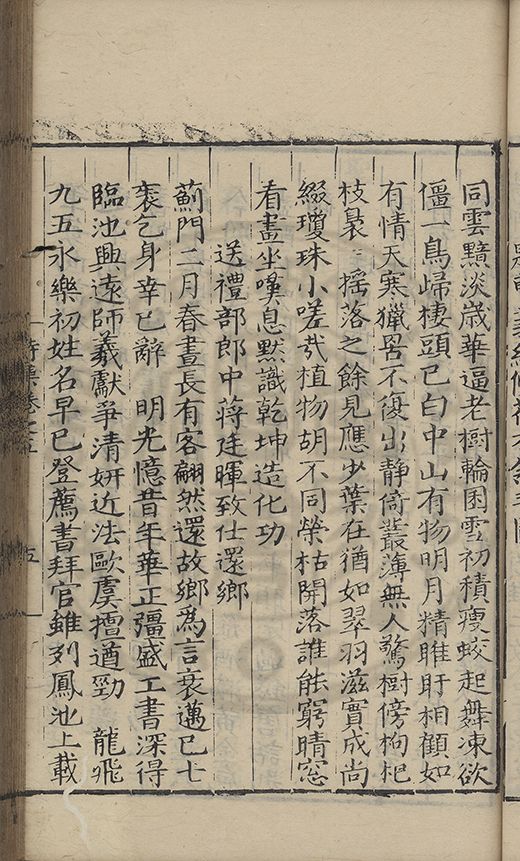 同雲黯淡歲華逼老樹輪囷雪初積瘦蛟起舞凍欲
僵一鳥歸棲頭已白中山有物明月精睢盱相顧如
有情天寒獵罟不復出靜倚叢薄無人驚樹傍枸杞
枝裊〻搖落之餘見應少葉在猶如翠羽滋實成尚
綴瓊珠小嗟哉植物胡不同榮枯開落誰能窮晴窓
看畫坐嘆息默識乾坤造化功
送禮部郎中蔣廷暉致仕還鄉
薊門二月春晝長有客翩然還故鄉為言衰邁已七
袠乞身幸已辭 明光憶昔年華正彊盛工書深得
臨池興遠師羲獻爭清妍近法歐虞擅遒勁 龍飛
九五永樂初姓名早已登薦書拜官錐列鳳池上載
詩集卷之五
五